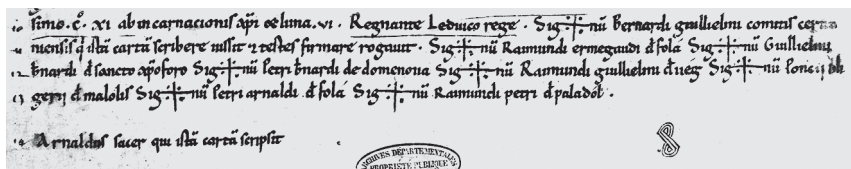 10 simo. c̊. xi ab incarnacionis xp̄i oe luna. vi. Regnante Leduico rege. Sig✝nū bernardi guillielmi comitis certa
11 niensis q̇ istā cartā scribere iussit ⁊ testes firmare rogauit. Sig✝nū Raimundi ermegaudi đ solā Sig✝nū Guillielmi
12 bn̄ardi đ sancto xp̄oforo Sig✝nū petri bn̄ardi de domenoua Sig✝nū Raimundi guillielmi đ Sig✝nū poncii
13 gerii đ malolis Sig✝nū petri arnaldi đ solā Sig✝nū Raimundi petri đ paladol.
14 Arnaldus sacer qui istā cartā scripsit
ARCHIVES DÉPARTEMENTALES
PROPRIÉTÉ PUBLIQUE